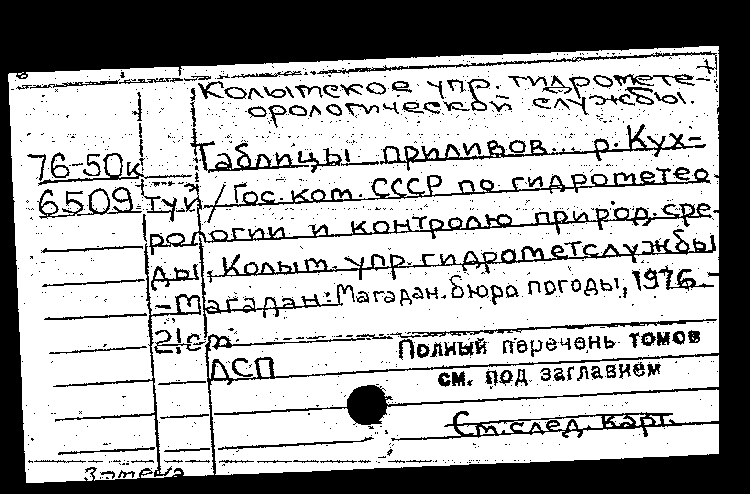 Колымское упр. гидромете-
орологической службы.
76-50к Таблицы приливов... р. Кух-
6509 туй / Гос. ком. СССР по гидрометео-
рологии и контролю природ. сре-
ды, Колым. упр. гидрометслужбы
-Магадан: Магадан. бюро погоды, 1976.-
21см.
Полный перечень томов
ДСП
см. под заглавием
См. след. карт.